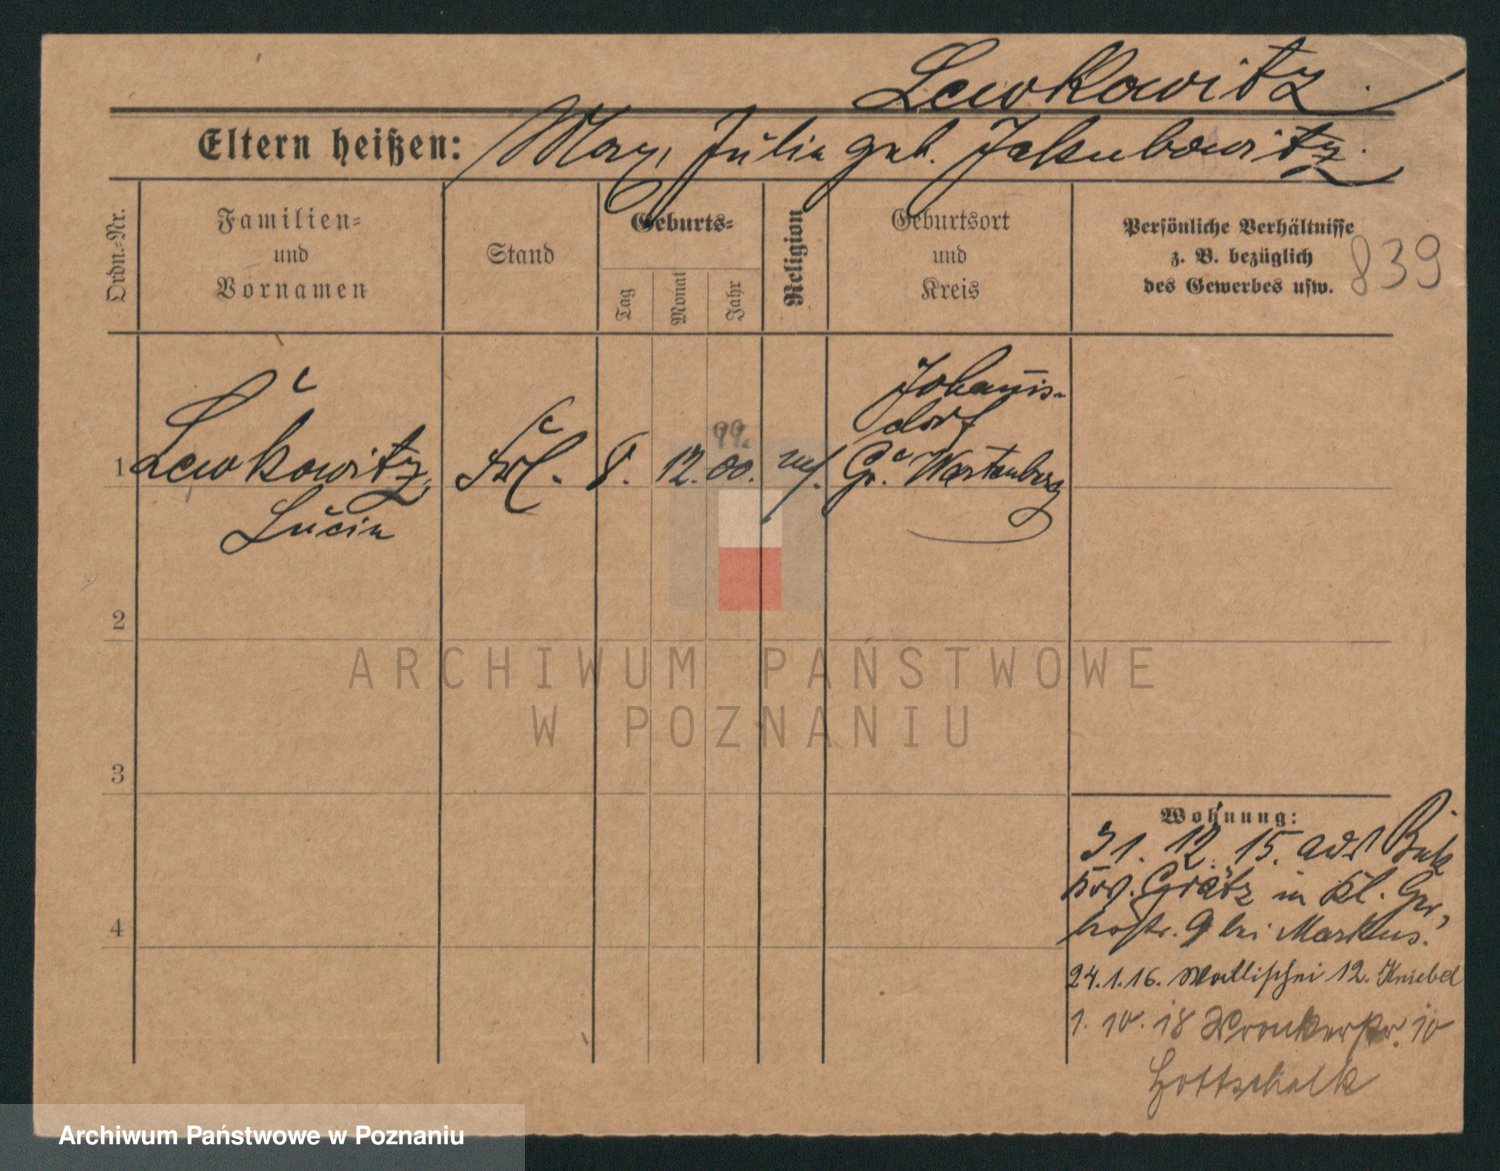 Lewkowitz.
Eltern heißen: Max, Julie geb. Jakubowitz.
Ordn.-Nr.
Familien-
und
Vornamen
Stand
Geburts-
Tag
Monat
Jahr
Religion
Geburtsort
und
Kreis
Persönliche Verhältnisse
z. B. bezüglich
des Gewerbes usw.
839
Johannis-
dorf
99.
1 Lewkowitz, Frl. 8. 12. 00. mos. Gr. Wartenberg
Lucie
2
ARCHIWUM PAŃSTWOWE
W POZNANIU
3
Wohnung:
31. 12. 15. aus Buk
Krs. Grätz in Kl. Ger-
berstr. 9 bei Markus.
4
24.1.16. Wallischei 12. Kniebel
1. 10. 18 Wronkerstr. 10
Gottschalk
Archiwum Państwowe w Poznaniu